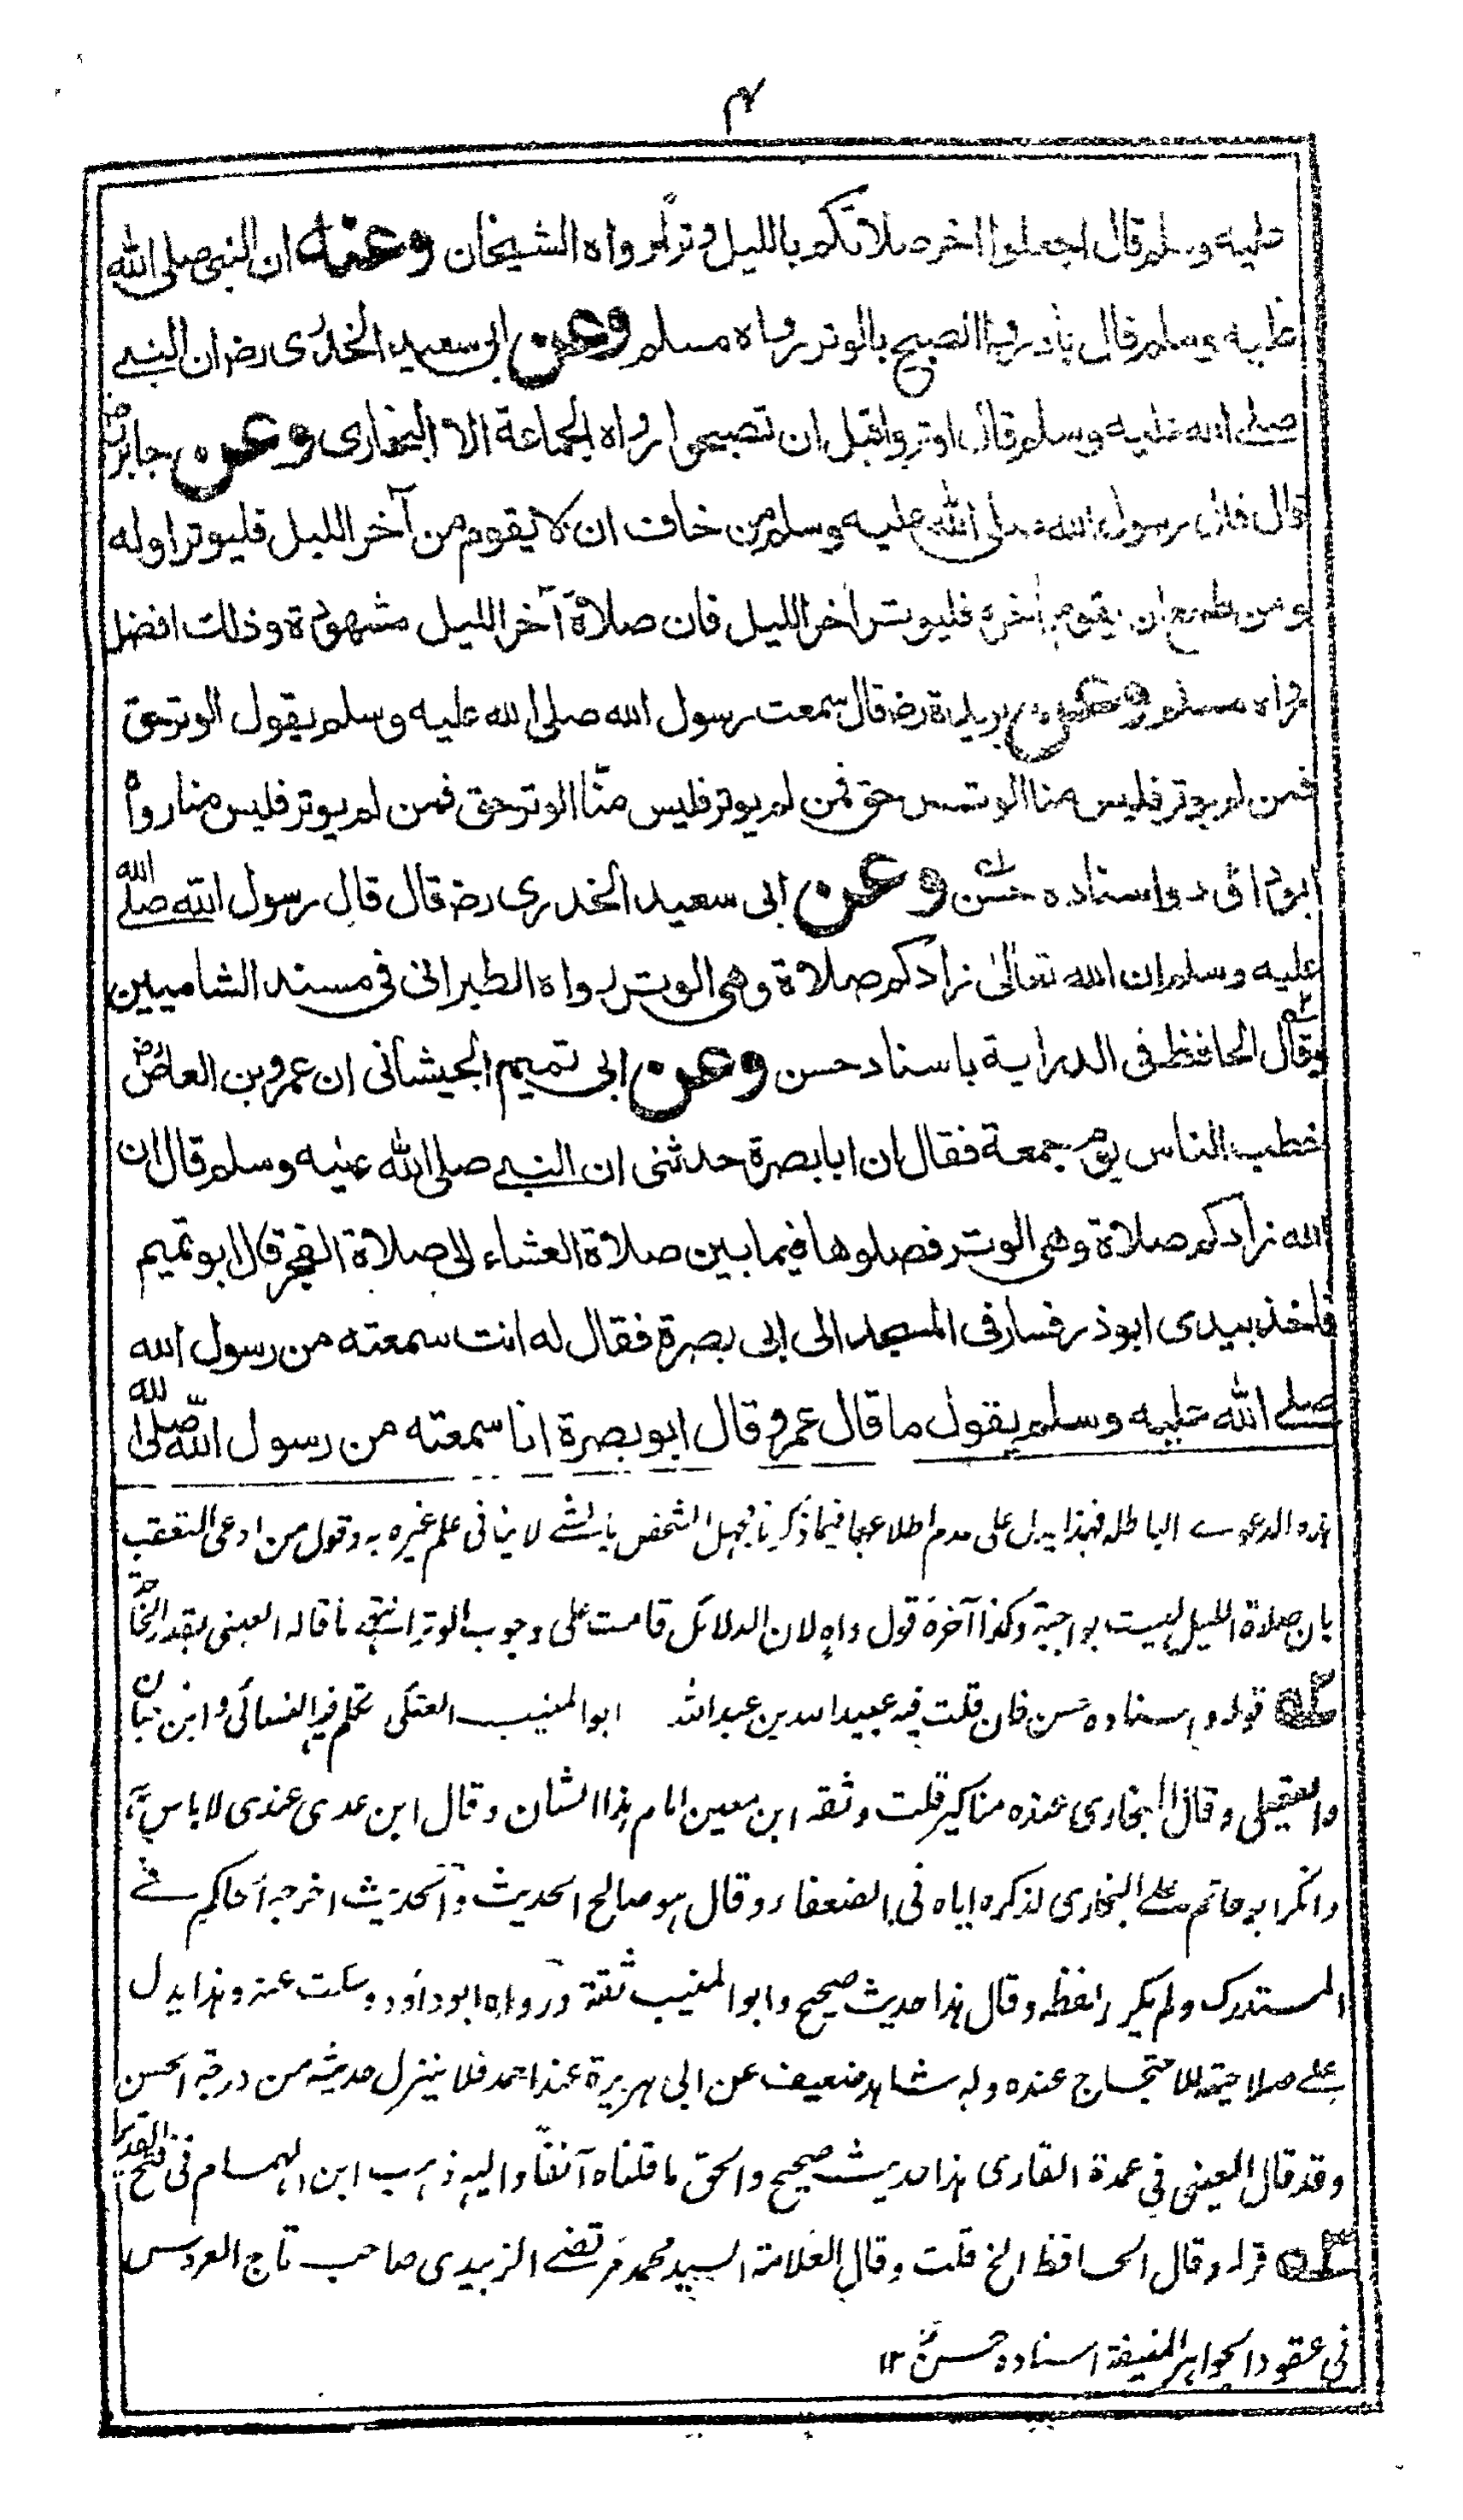 ٣
عليه وسلم قال اجعلوا اخر صلاتكم بالليل وترا رواه الشيخان وعنه ان النبي صلى الله
عليه وسلم قال بادروا الصبح بالوتر رواه مسلم وعن ابى سعيد الخدرى رضـ ان النبي
صلى الله عليه وسلم قال اوتروا قبل ان تصبحوا رواه الجماعة الا البخارى وعن جابر رضـ
قال قال رسول الله صلى الله عليه وسلم من خاف ان لا يقوم من آخر الليل فليوتر اوله
ومن طمع ان يقوم اخره فليوتر اخر الليل فان صلاة آخر الليل مشهودة وذلك افضل
رواه مسلم وعن بريدة رضـ قال سمعت رسول الله صلى الله عليه وسلم يقول الوتر حق
فمن لم يوتر فليس منا الوتر حق فمن لم يوتر فليس منّا الوتر حق فمن لم يوتر فليس منا رواه
ابو داؤد واسناده حسن وعن ابى سعيد الخدرى رضـ قال قال رسول الله صلى الله
عليه وسلم ان الله تعالى زادكم صلاة وهى الوتر رواه الطبرانى فى مسند الشاميين
وقال الحافظ فى الدراية باسناد حسن وعن ابى تميم الجيشانى ان عمرو بن العاص رضـ
خطب الناس يوم جمعة فقال ان ابا بصرة حدثنى ان النبي صلى الله عليه وسلم قال ان
الله زادكم صلاة وهى الوتر فصلوها فيما بين صلاة العشاء الى صلاة الفجر قال ابو تميم
فاخذ بيدى ابوذر فسار فى المسجد الى ابى بصرة فقال له انت سمعته من رسول الله
صلى الله عليه وسلم يقول ما قال عمرو قال ابو بصرة انا سمعته من رسول الله صلى الله
هذه الدعوى الباطله فهذا يدل على عدم اطلاعها فيما ذكرنا فجهل الشخص بالشئ لا ينافى علم غيره به وقول من ادعى التعقب
بان صلاة الليل ليست بواجبة وكذا آخره قول واه لان الدلائل قامت على وجوب الوتر انتهى ما قاله العينى بقدر الحاجة
قوله واسناده حسن فان قلت فيه عبيد الله بن عبد الله ابو المنيب العتكى تكلم فيه النسائى وابن حبان
والعقيلى وقال البخارى عنده مناكير قلت وثقه ابن معين امام هذا الشان وقال ابن عدى عندى لا باس به
وانكر ابو حاتم على البخارى لذكره اياه فى الضعفاء وقال هو صالح الحديث والحديث اخرجه الحاكم فى
المستدرك ولم يكرر لفظه وقال هذا حديث صحيح وابو المنيب ثقة ورواه ابو داؤد وسكت عنه وهذا يدل
على صلاحيته للاحتجاج عنده وله شاهد ضعيف عن ابى هريرة عند احمد فلا ينزل حديثه من درجة الحسن
وقد قال العينى فى عمدة القارى هذا حديث صحيح والحق ما قلناه آنفا واليه ذهب ابن الهمام فى فتح القدير
قوله وقال الحافظ الخ قلت وقال العلامة السيد محمد مرتضى الزبيدى صاحب تاج العروس
فى عقود الجواهر المنيفة اسناده حسن ١٢